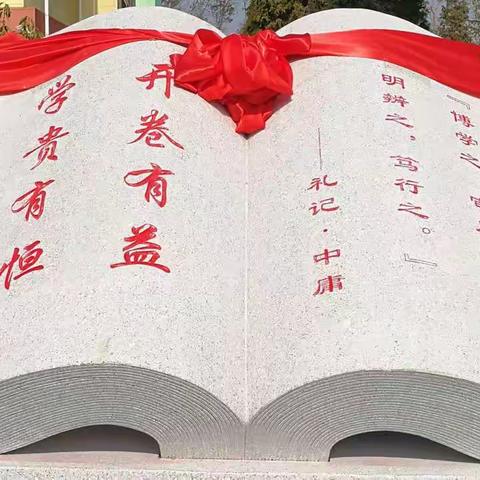 『博学之，审
明辨之，笃行之。』
——礼记·中庸
开卷有益
学贵有恒